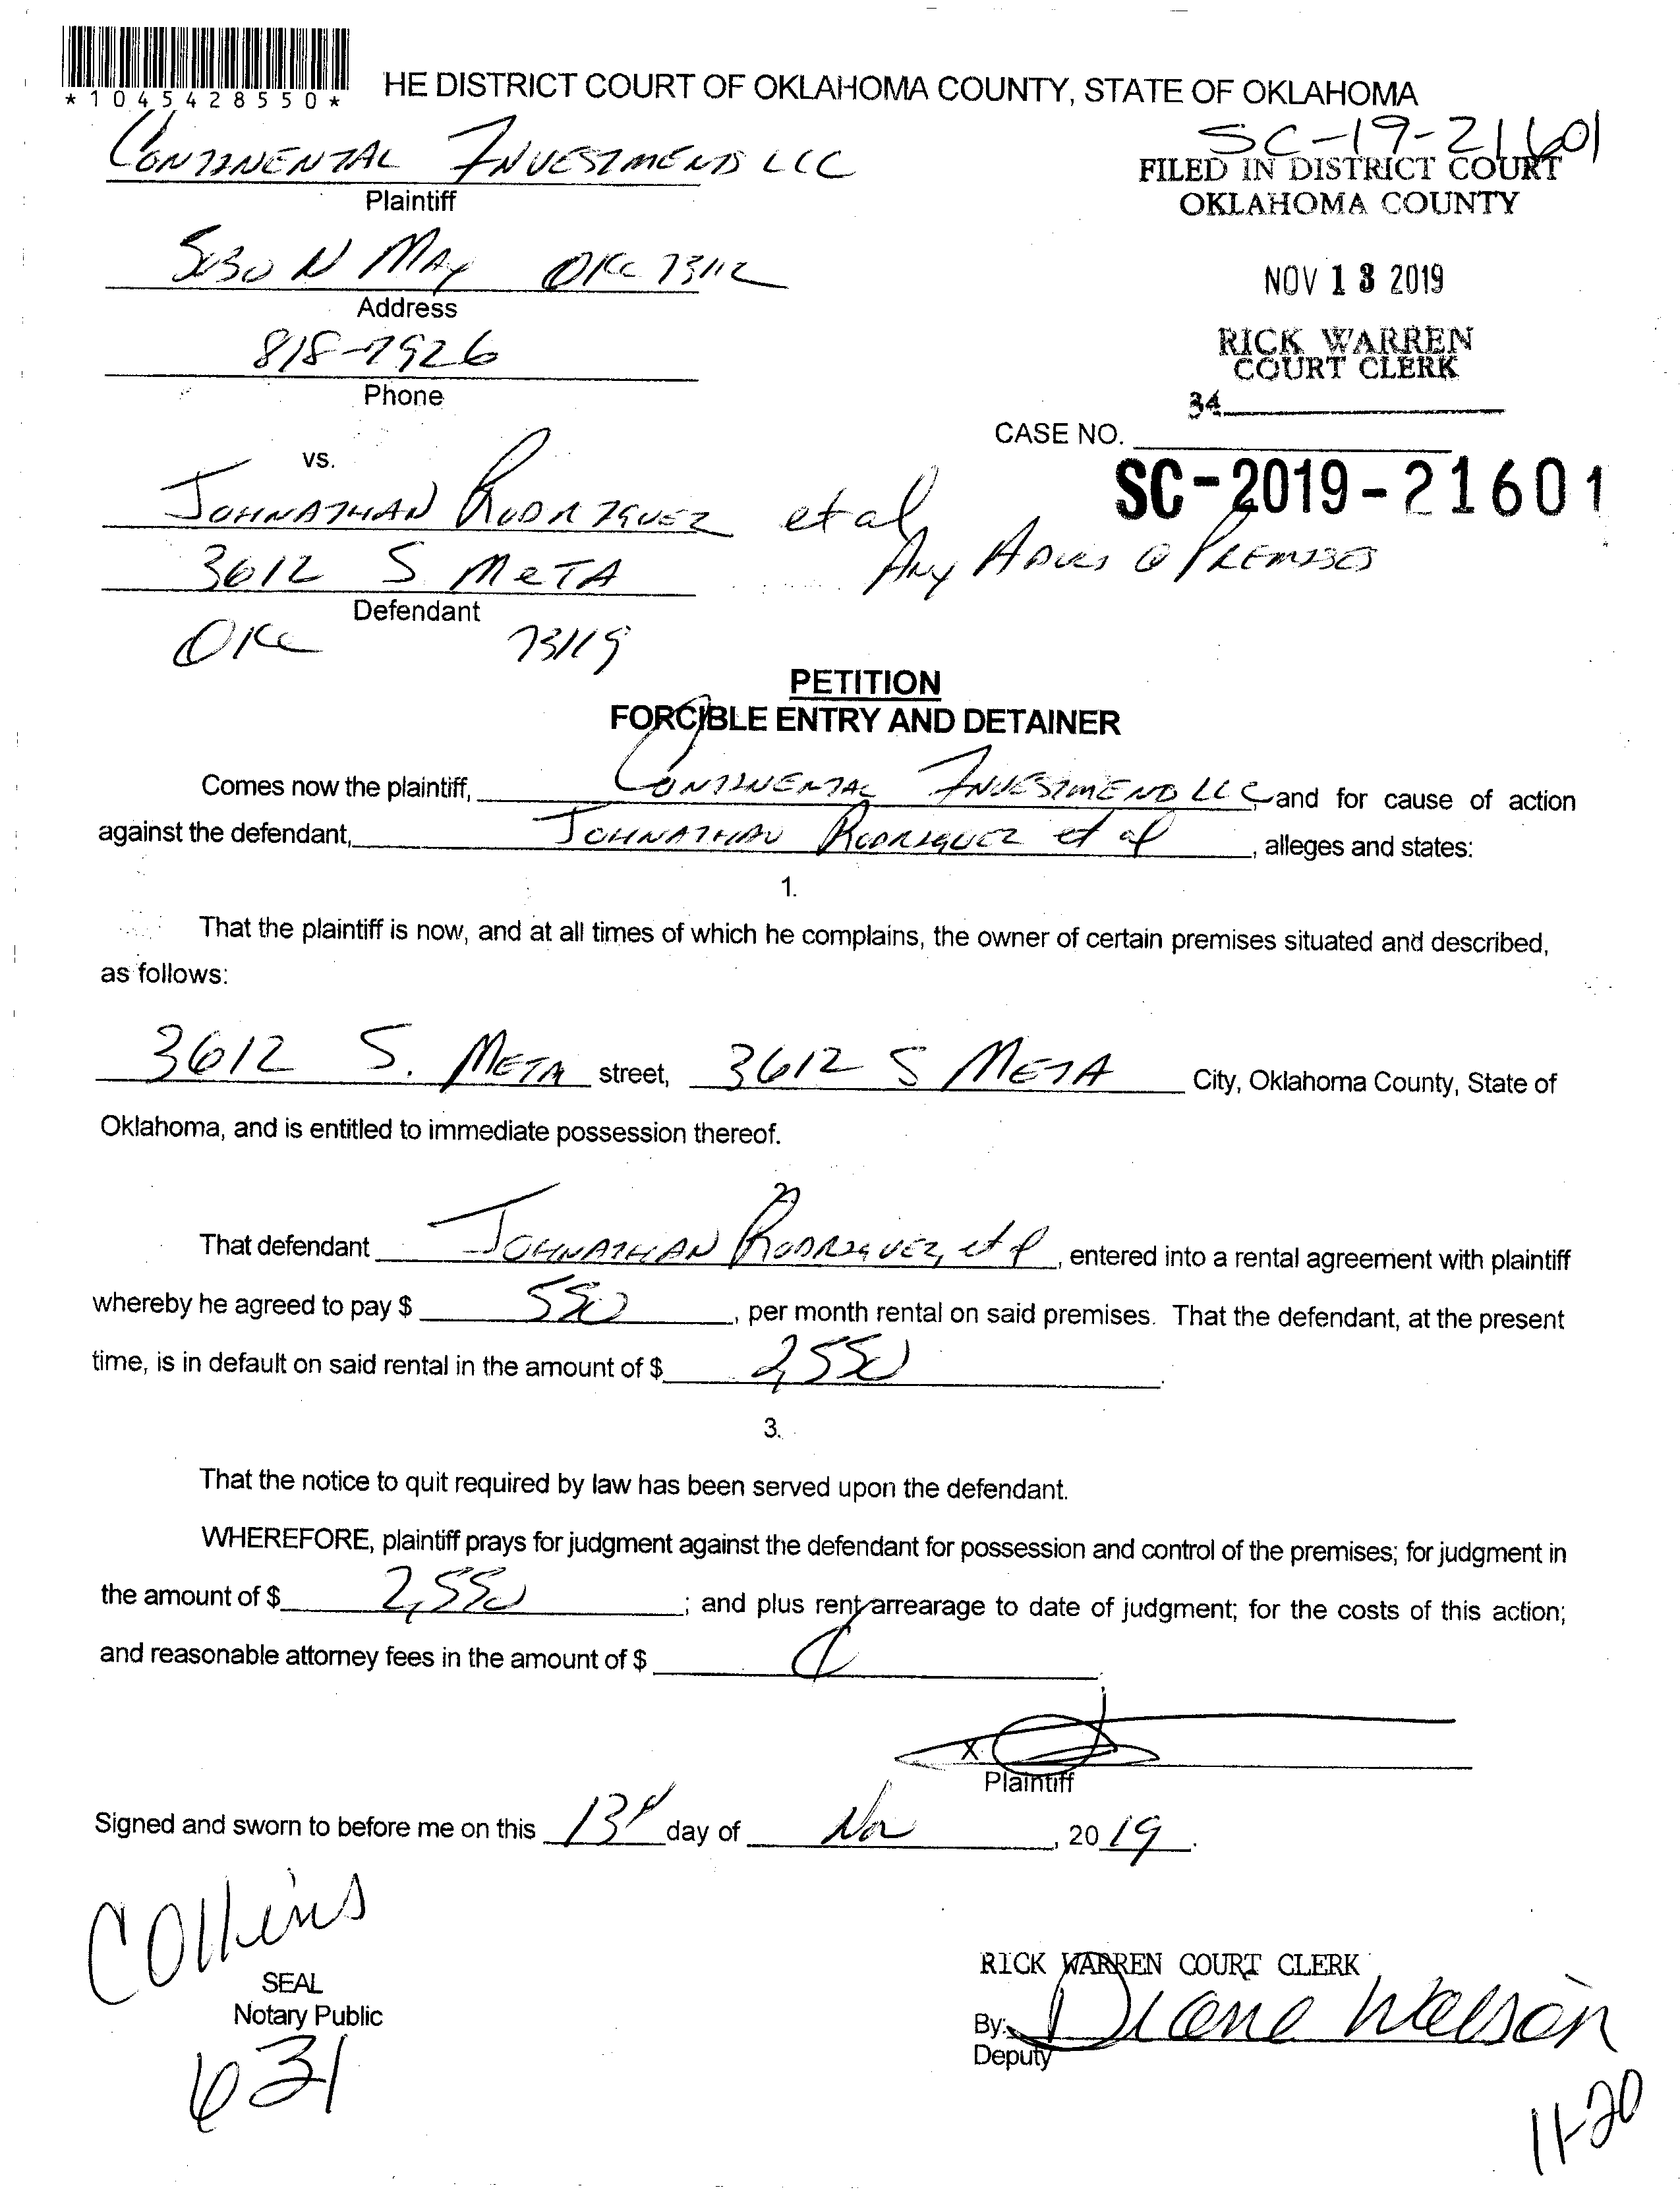 *1045428550*
HE DISTRICT COURT OF OKLAHOMA COUNTY, STATE OF OKLAHOMA
SC-19-21601
CONTINENTAL INVESTMENTS LLC
FILED IN DISTRICT COURT
Plaintiff
OKLAHOMA COUNTY
N MAY OKC 73112
NOV 13 2019
Address
818-7926
RICK WARREN
COURT CLERK
Phone
34
CASE NO.
vs.
SC-2019-21601
JOHNATHAN RODRIGUEZ et al
ANY @ PREMISES
3612 S META
Defendant
OKC 73119
PETITION
FORCIBLE ENTRY AND DETAINER
Comes now the plaintiff, CONTINENTAL INVESTMENTS LLC and for cause of action
against the defendant, JOHNATHAN RODRIGUEZ et al, alleges and states:
1.
That the plaintiff is now, and at all times of which he complains, the owner of certain premises situated and described,
as follows:
3612 S. META street, 3612 S META City, Oklahoma County, State of
Oklahoma, and is entitled to immediate possession thereof.
2
That defendant JOHNATHAN RODRIGUEZ, et al, entered into a rental agreement with plaintiff
whereby he agreed to pay $ 550, per month rental on said premises. That the defendant, at the present
time, is in default on said rental in the amount of $ 2,550.
3.
That the notice to quit required by law has been served upon the defendant.
WHEREFORE, plaintiff prays for judgment against the defendant for possession and control of the premises; for judgment in
the amount of $ 2,550; and plus rent arrearage to date of judgment; for the costs of this action;
and reasonable attorney fees in the amount of $
X
Plaintiff
Signed and sworn to before me on this 13th day of Nov, 2019.
Collins
SEAL
Notary Public
631
RICK WARREN COURT CLERK
By: Diane Watson
Deputy
11-20